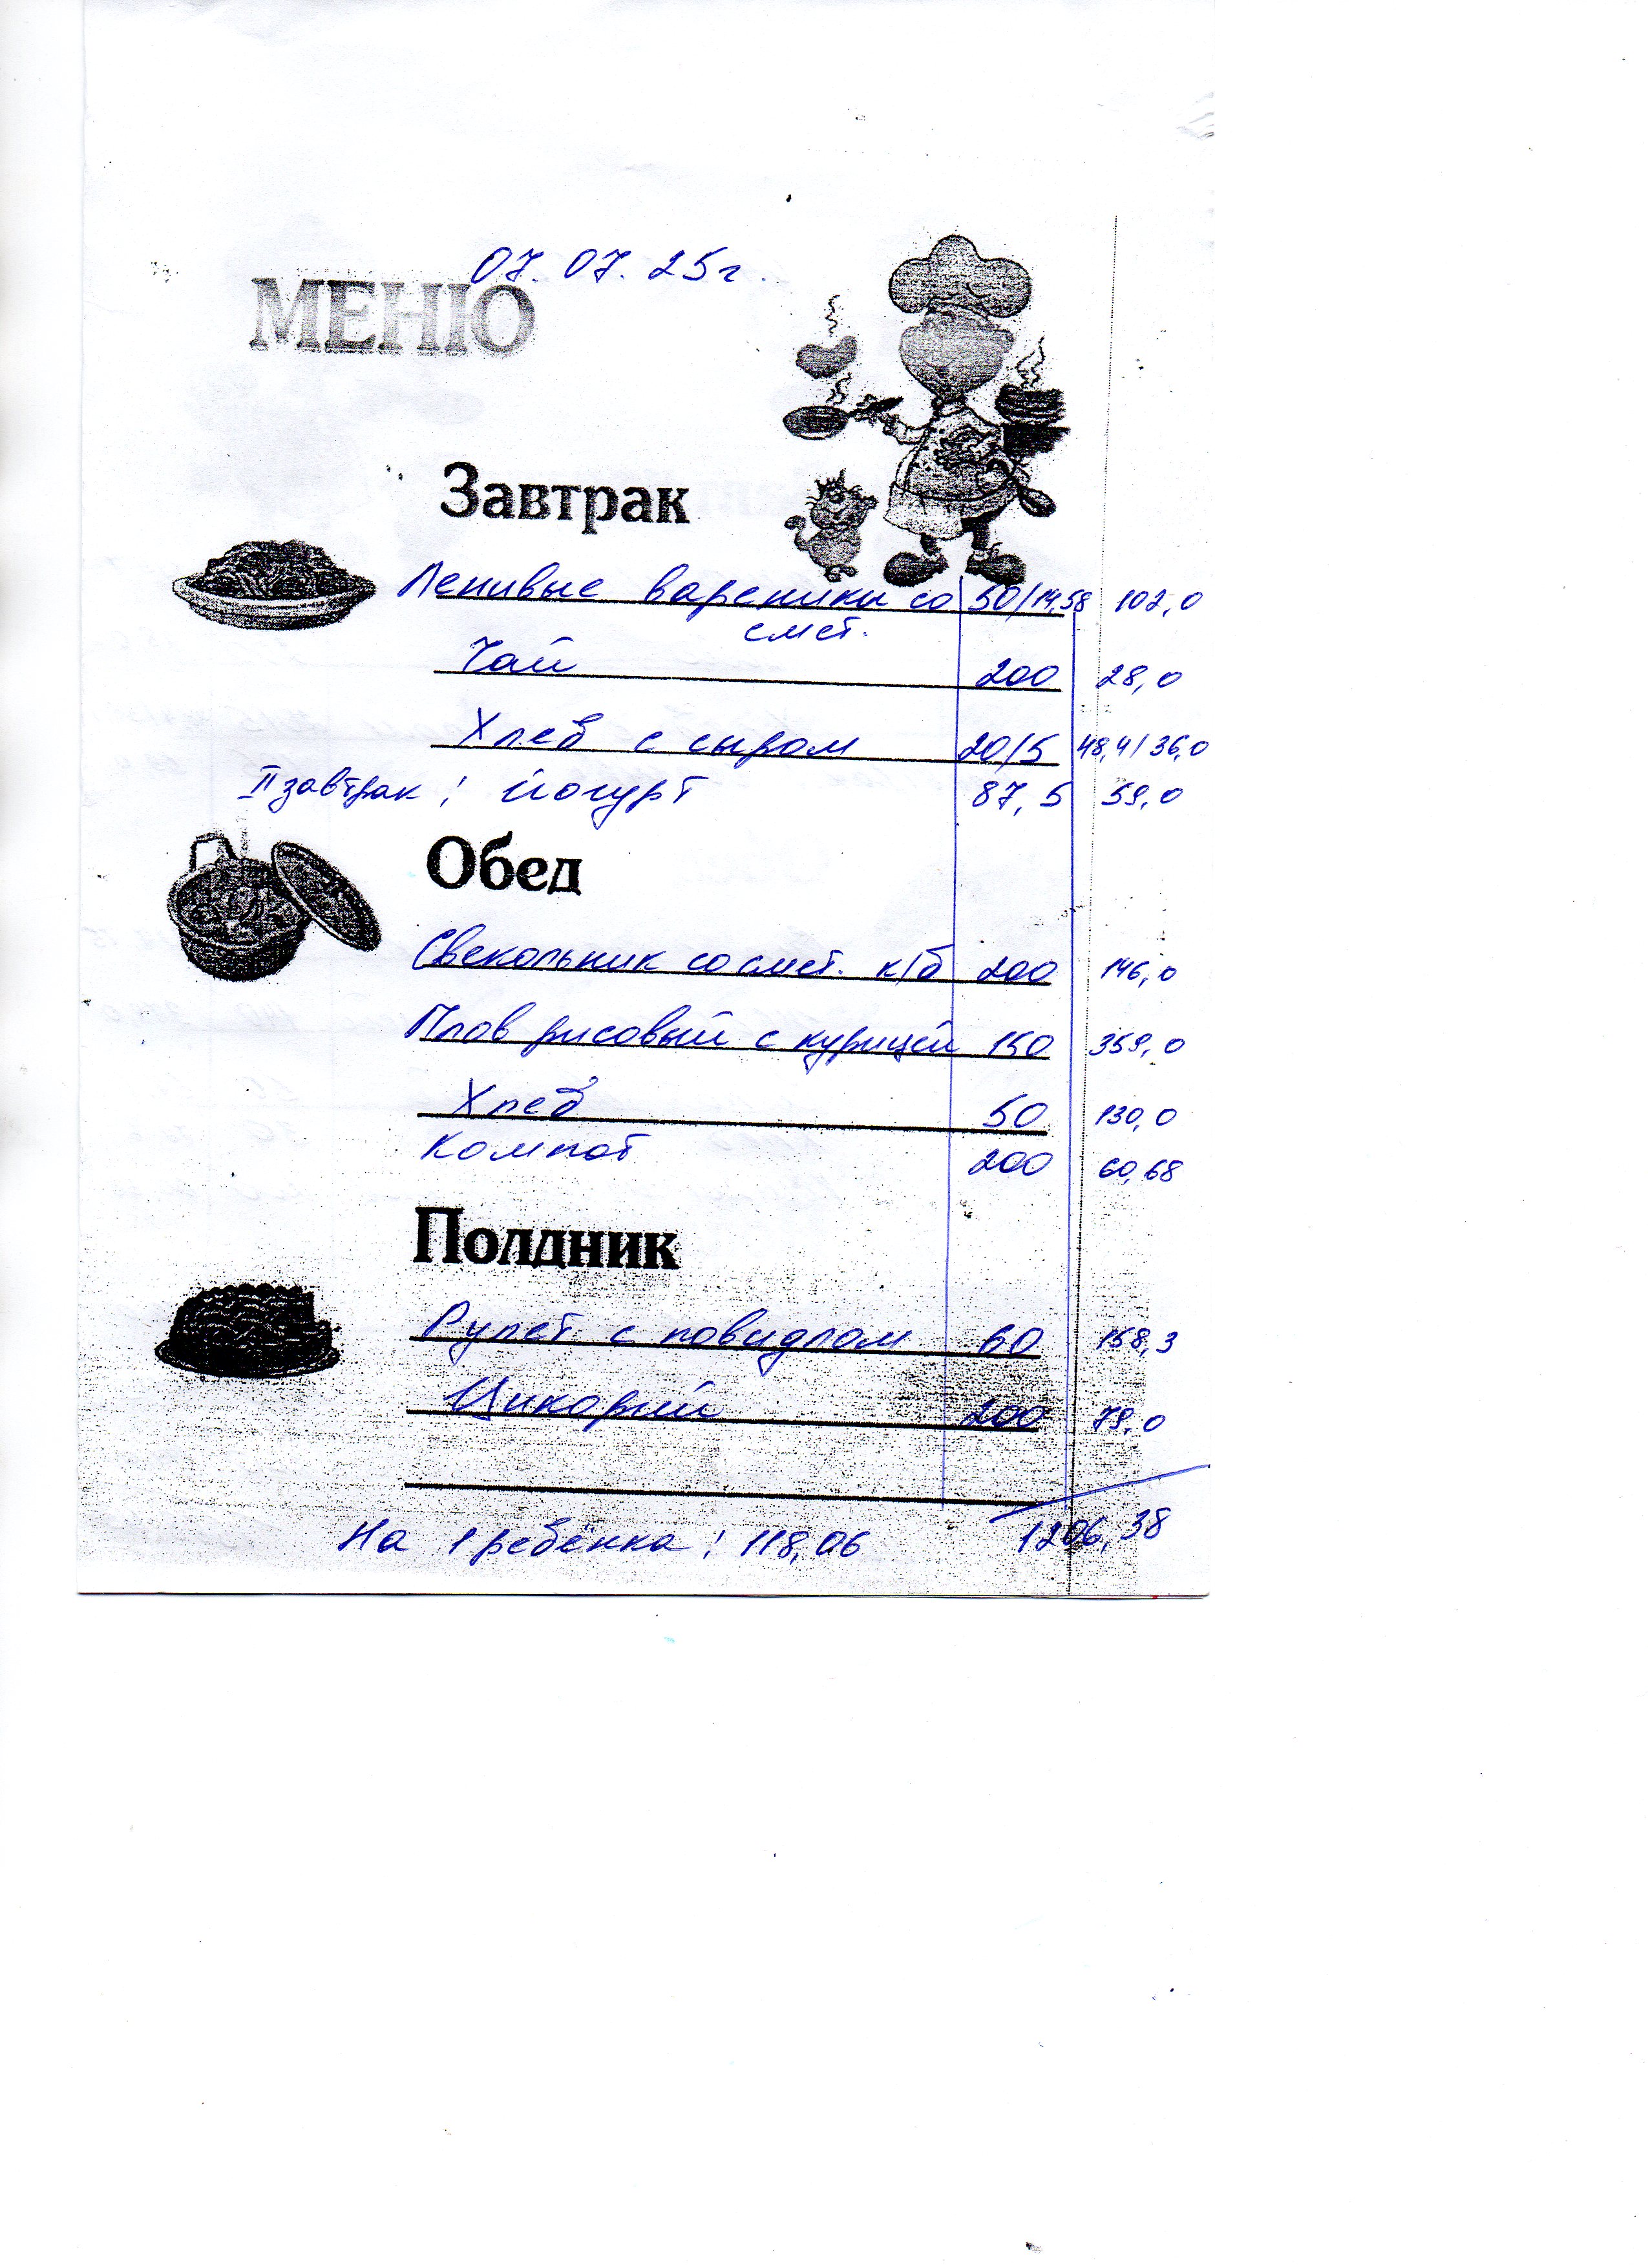 07.07.25г.
МЕНЮ
Завтрак
Ленивые вареники со 50/14,58 102,0
смет.
Чай 200 28,0
Хлеб с сыром 20/5 48,4/36,0
II завтрак: йогурт 87,5 59,0
Обед
Свекольник со смет. к/б 200 146,0
Плов рисовый с курицей 150 359,0
Хлеб 50 130,0
Компот 200 60,68
Полдник
Рулет с повидлом 60 158,3
Цикорий 200 79,0
На 1 ребёнка: 118,06 1206,38